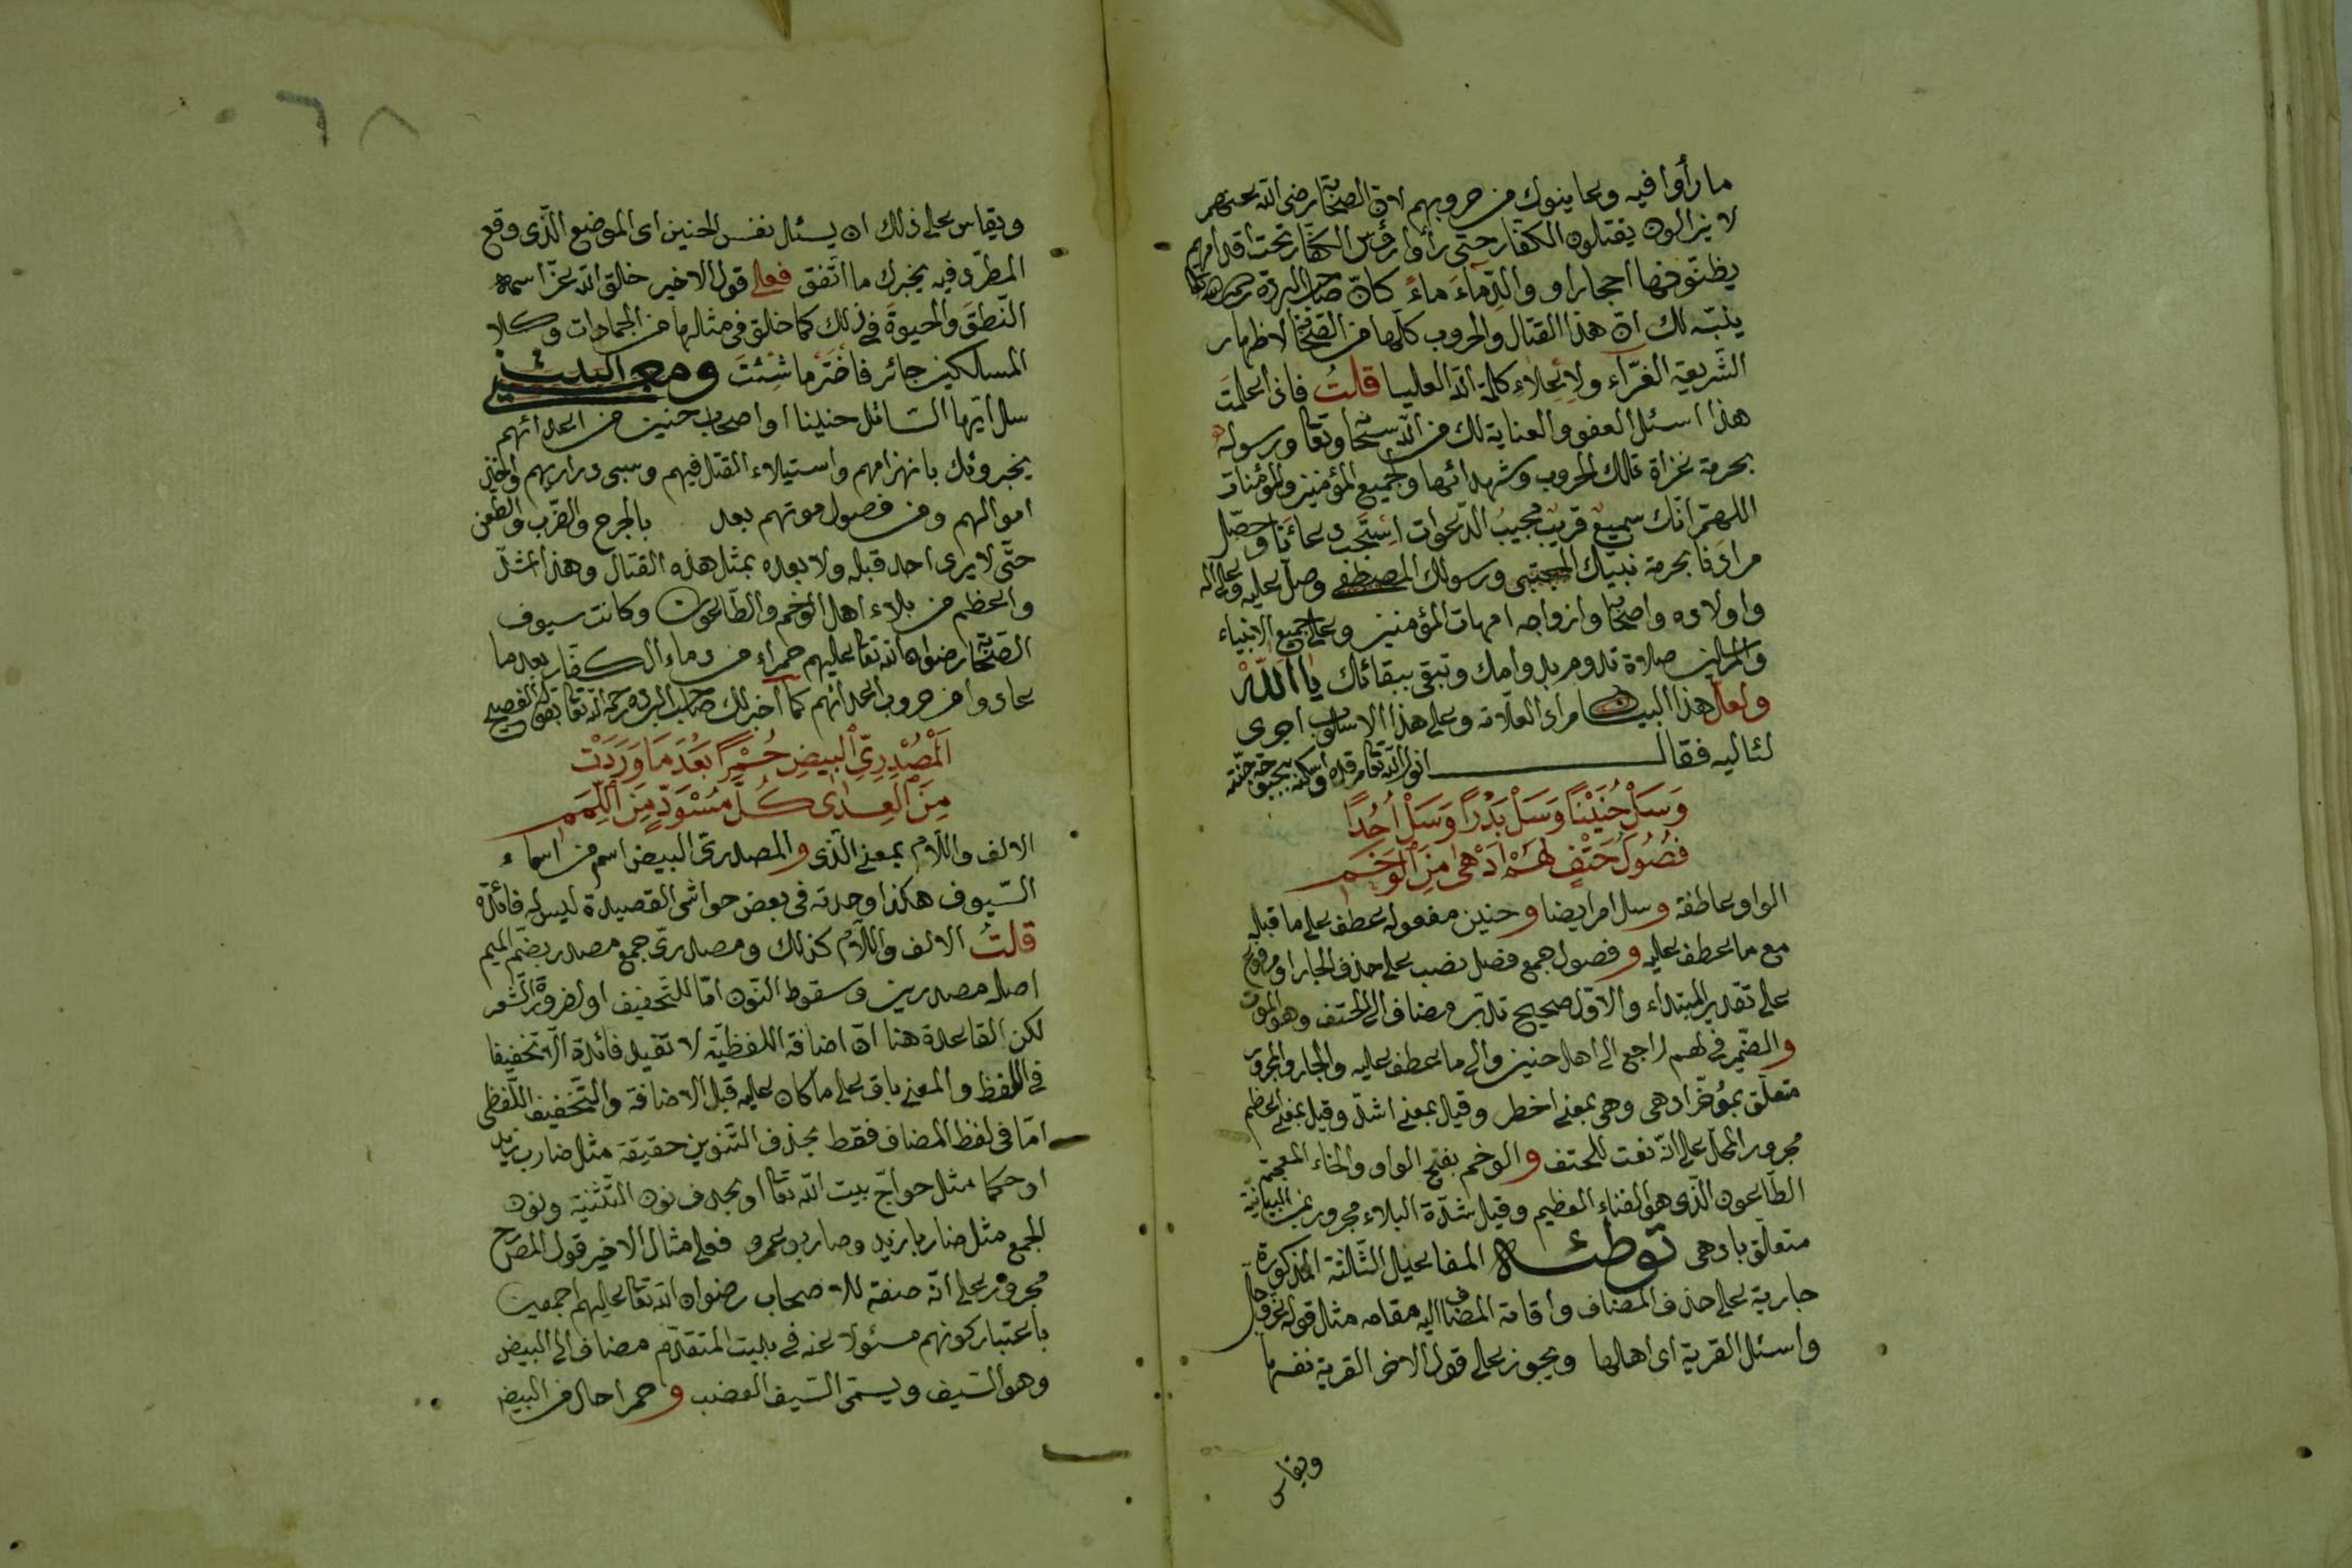 ما رأوا فيه وعاينوك من حروبهم لانّ الصحابة رضى الله عنهم
لا يزالون يقتلون الكفّار حتى رأوا رؤس الكفّار تحت اقدامهم
يظنّونها احجارا و والدِّماءَ ماءً كانّ صاحب البردة رحمه الله تعا
ينبّه لك انّ هذا القتال والحروب كلّها من الصحابة لاظهار
الشّريعة الغرّاء ولاِعلاءِ كلمة الله العليا قلتُ فاذا علمتَ
هذا اسئل العفو والعناية لك من الله سبحا وتعا ورسوله
بحرمة غزاة تلك الحروب وشهدائها وجميع المؤمنين والمؤمنات
اللهمّ انّك سميع قريب مجيبُ الدّعوات اِستجب دعاءَنا وحصّل
مرادَنا بحرمة نبيّك المجتبى ورسولك المصطفى وصلّ عليه وعلى اله
واولاده واصحابه وازواجه امهات المؤمنين وعلى جميع الانبياء
والمرسلين صلاة تدوم بدوامك وتبقى ببقائك يا الله
ولعلّ هذا البيان مراد العلّامة وعلى هذا الاسلوب اجرى
لثاليه فقال انور الله تعا مرقده واسكنه بحبوحة جنّته
وَسَلْ حُنَيْنًا وَسَلْ بَدْرًا وَسَلْ اُحُدًا
فُصُولَ حَتْفٍ لَهُمْ اَدْهٰى مِنَ الْوَخَمِ
الواو عاطفة وسل امر ايضا وحنين مفعوله عطف على ما قبله
مع ما عطف عليه وفصول جمع فصل نصب على حذف الجار او مرفوع
على تقدير المبتداء والاوّل صحيح تدبّر مضاف الى الحتف وهو الموت
والضّمير فى لهم راجع الى اهل حنين والى ما عطف عليه والجار والمجرور
متعلّق بمؤخّر ادهى وهى بمعنى اخطر وقيل بمعنى اشدّ وقيل بمعنى اعظم
مجرور المحل على انّه نعت للحتف والوخم بفتح الواو والخاء المعجمة
الطّاعون الّذى هو الفناء العظيم وقيل شدّة البلاء مجرور بمن البيانيّة
متعلّق بادهى توطئه المفاعيل الثّالثة المذكورة
جارية على حذف المضاف واقامة المضاف اليه مقامه مثل قوله عزّ وجل
واسئل القرية اى اهلها ويجوز على قول الاخر القرية نفسها
ويقاس
٦٨
ويقاس على ذلك ان يسئل نفس الحنين اى الموضع الّذى وقع
المطرّى فيه يخبرك ما اتّفق فعلى قول الاخير خالق الله عزّ اسمه
النّطقَ والحيوةَ فى ذلك كما خلق فى مثالها من الجمادات وكلا
المسالكين جائز فاختَر ما شئتَ ومعنى البيت
سل ايّها السّائل حنينا او اصحاب حنين من اعدائهم
يخبرونك بانهزامهم واستيلاء القتل فيهم وسبى ذراريهم واخذ
اموالهم ومن فصول موتهم بعد بالجرح والضّرب والطّعن
حتّى لا يرى احد قبله ولا بعده بمثل هذه القتال وهذا اشدّ
واعظم من بلاء اهل الوخم والطّاعون وكانت سيوف
الصّحابة رضوان الله تعا عليهم حمراء من دماء الكفّار بعد ما
عادوا من حروب اعدائهم كما اخبر لك صاحب البردة رحمه الله تعا بقوله الفصيح
اَلْمُصْدِرِىِّ الْبِيضِ حُمْرًا بَعْدَ مَا وَرَدَتْ
مِنَ الْعِدٰى كُلَّ مُسْوَدٍّ مِنَ اللِّمَمِ
الالف واللّام بمعنى الّذى والمصدرى البيض اسم من اسماء
السّيوف هكذا وجدته فى بعض حواشى القصيدة ليس له فائدة
قلتُ الالف واللّام كذلك ومصدرى جمع مصدر بضمّ الميم
اصله مصدرين وسقوط النّون امّا للتّخفيف او لضرورة الشّعر
لكن القاعدة هنا انّ اضافة اللفظيّة لا تفيد فائدة الّا تخفيفا
فى اللفظ والمعنى باق على ما كان عليه قبل الاضافة والتّخفيف اللّفظى
امّا فى لفظ المضاف فقط بحذف التّنوين حقيقة مثل ضارب زيد
او حكما مثل حواجّ بيت الله تعا او بحذف نون التّثنية ونون
الجمع مثل ضاربا زيد وضاربو عمرو فعلى مثال الاخير قول المصرح
مجرور على انّه صفة للاصحاب رضوان الله تعا عليهم اجمعين
باعتبار كونهم مسئولا عنه فى بيت المتقدّم مضاف الى البيض
وهو السّيف ويسمّى السّيف العضب وحمرا حال من البيض